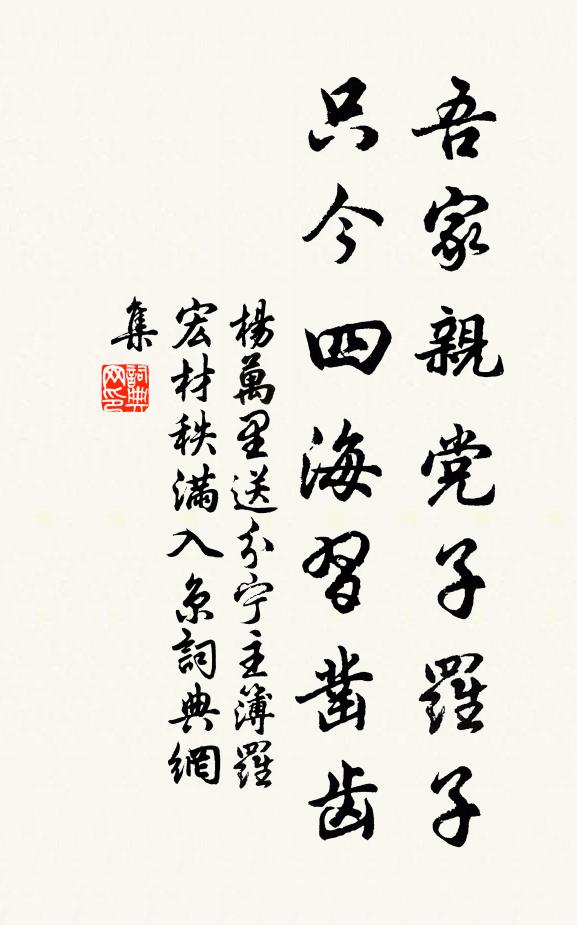 吾家親党子羅子
只今四海習凿齿
楊萬里送分宁主簿羅
宏材秩滿入京詞典網
集
詞典网印